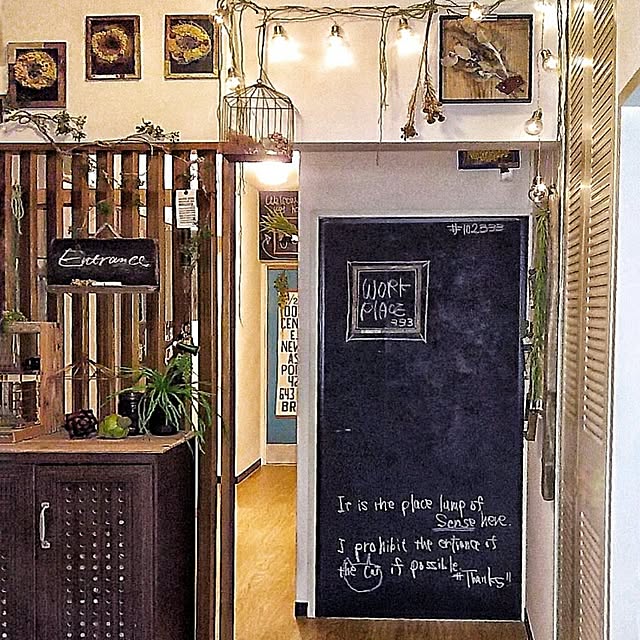 Entrance
Welcome
#102333
WORK
PLACE
333
CEN
E
NEW
AS
PO
42
643
BR
It is the place lump of
Sense here.
I prohibit the entrance of
the Cat if possible.
#Thanks"